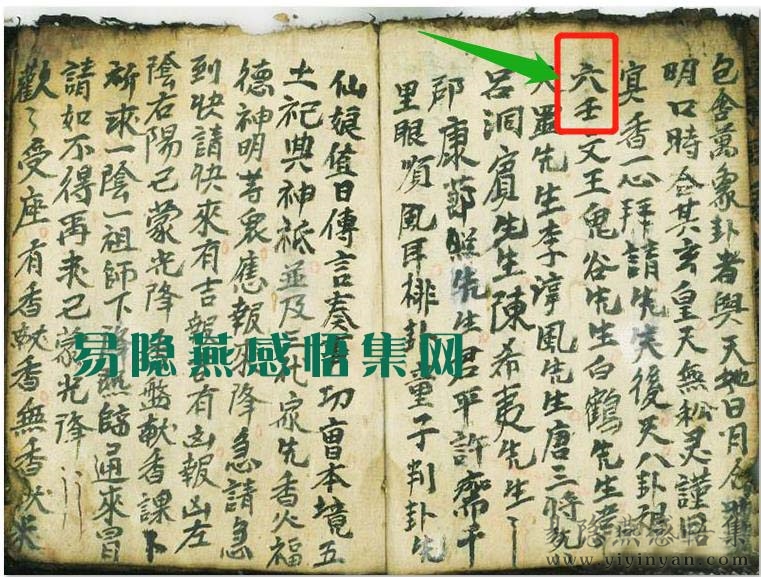 包含萬象卦者與天地日月
明口時合其玄皇天無私灵謹
寘香一心拜請先天後天八卦
六壬文王鬼谷先生白鶴先生
羅先生李淳風先生唐三
呂洞賓先生陳希夷先生
邵康節先生君平許 千
里眼順風耳排卦童子判卦先
仙娘值日傳言奏 功曹本境五
土祀典神祗並及 家先香火福
德神明 衆應報 降急請急
到快請快來有吉報 有凶報凶左
陰右陽已蒙光降 盤献香課
祈求一陰一祖師下 通來冒
請如不得再 已蒙光降
歡々受座有香献香無香
易隐燕感悟集网
易隐燕感悟集
www.yiyinyan.com